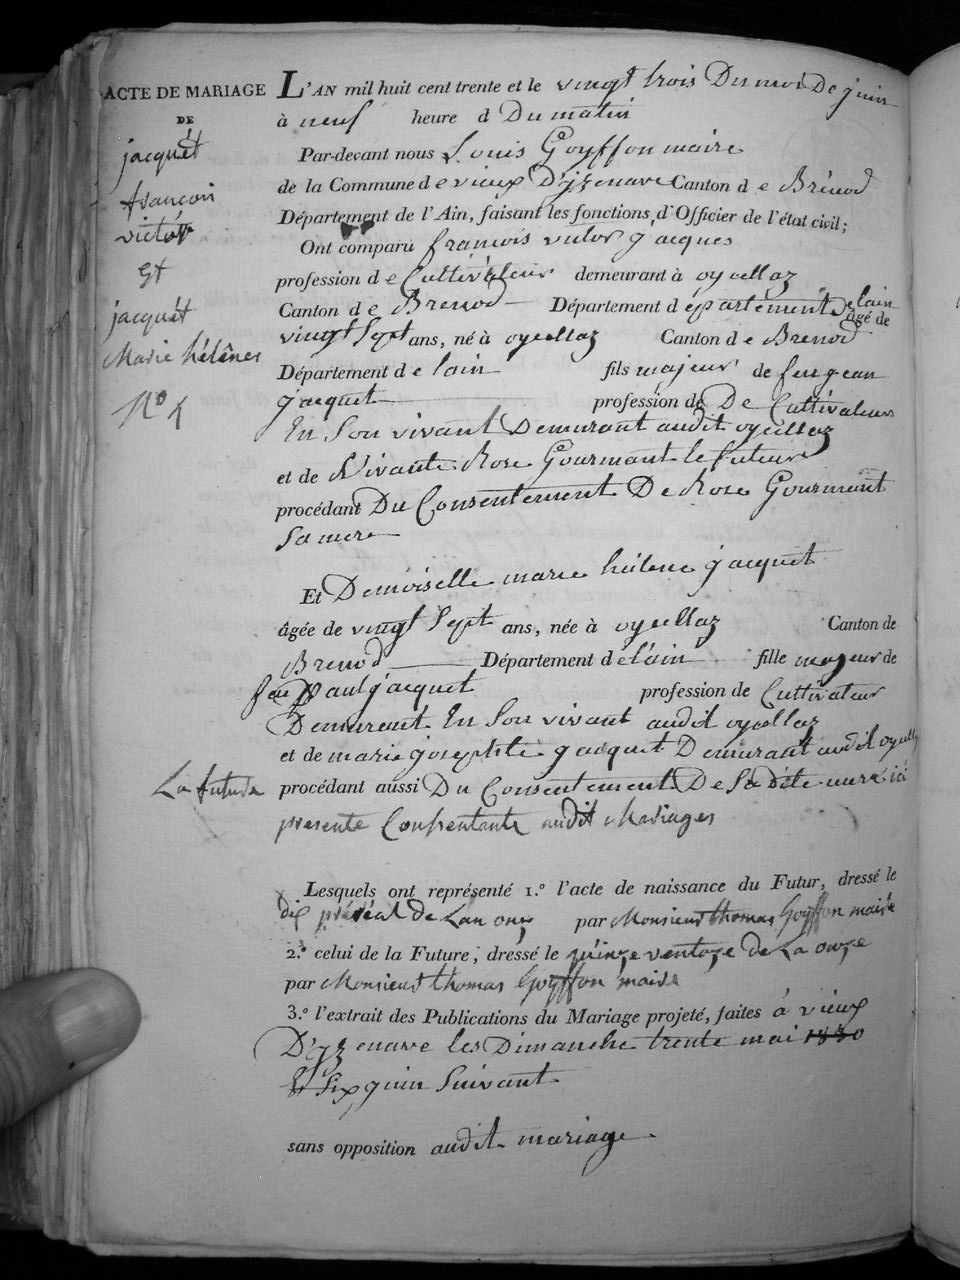 ACTE DE MARIAGE
DE
jacquét
françoin
victor
Et
jacquét
Marie hélènes
N° 4
L'AN mil huit cent trente et le vingt trois Du moi De juin
à neuf heure d Du matin
Par-devant nous Louis Goyffon maire
de la Commune de vieux D'yzenave Canton de Brénod
Département de l'Ain, faisant les fonctions d'Officier de l'état civil;
Ont comparu francois victor jacques
profession de Cultivateur demeurant à oyeellaz
Canton de Brenod Département département De lain âgé de
vingt Sept ans, né à oyeellaz Canton de Brenod
Département de lain fils majeur de feu jean
jacquet profession de De Cultivateur
En Son vivant Demurant audit oyeellaz
et de Vivante Rose Gourmant le futeur
procédant Du Consentement De Rose Gourmant
Sa mere
Et Demoiselle marie hélene jacquet
âgée de vingt Sept ans, née à oyeellaz Canton de
Brenod Département de l'ain fille majeur de
feu Paul jacquet profession de Cultivateur
Demurent En Son vivant audit oyeellaz
et de marie josephte jacquet Demurant audit
La future procédant aussi Du Consentement De Sa dite mere ici
presente Consentante audit Mariages
Lesquels ont représenté 1.° l'acte de naissance du Futur, dressé le
dix préréal de Lan onz par Monsieur thomas Goyffon maire
2.° celui de la Future, dressé le quinze ventoze de La onze
par Monsieur thomas Goyffon maire
3.° l'extrait des Publications du Mariage projeté, faites à vieux
D'yzenave les Dimanche trente mai 1830
Et Six juin Suivant
sans opposition audit mariage